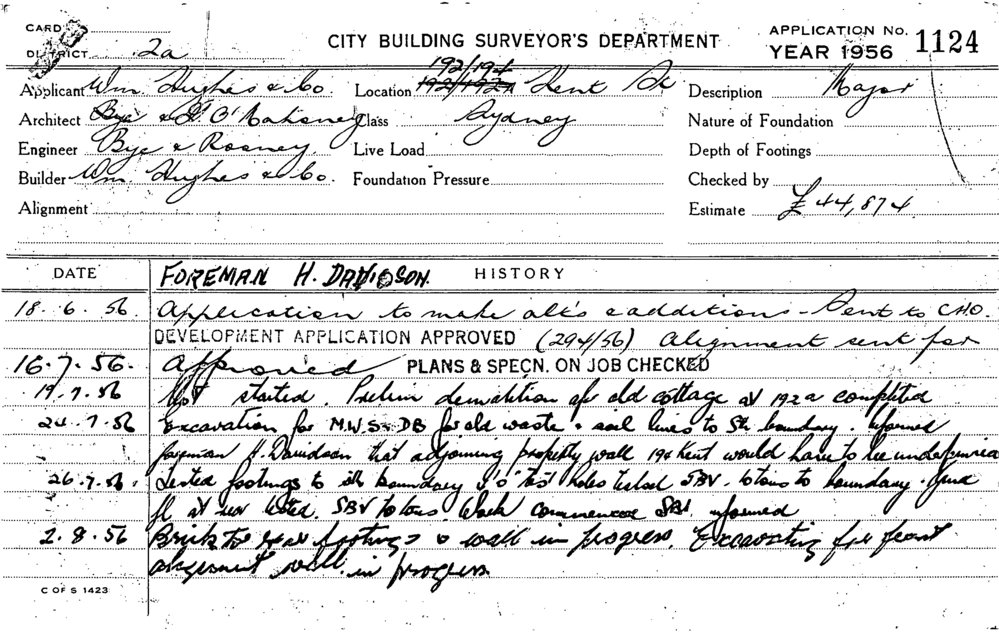 CARD
DISTRICT 2a
CITY BUILDING SURVEYOR'S DEPARTMENT
APPLICATION No. 1124
YEAR 1956
192/194
Applicant Wm. Hughes & Co. Location Kent St Description Major
Architect Bye & O'Mahoney Class Sydney Nature of Foundation
Engineer Bye & Rooney Live Load Depth of Footings
Builder Wm. Hughes & Co. Foundation Pressure Checked by
Alignment Estimate £44,874
DATE FOREMAN H. DAVIDSON. HISTORY
18.6.56. Application to make alt's & additions - Sent to CHO.
DEVELOPMENT APPLICATION APPROVED (294/56) Alignment sent for
16.7.56. Approved PLANS & SPECN. ON JOB CHECKED
19.7.56 Not started. Prelim demolition of old cottage at 192a completed
24.7.56 Excavation for M.W.S. & DB for old waste & soil lines to Sth boundary. Informed
foreman H. Davidson that adjoining property wall 194 Kent would have to be underpinned
26.7.56. Tested footings to sth boundary holes tested SBV. to boundary.
fl at rear tested. SBV Work commenced SBV informed
2.8.56 Brick to rear footings & wall in progress. Excavating for front
alignment wall in progress
C OF S 1423